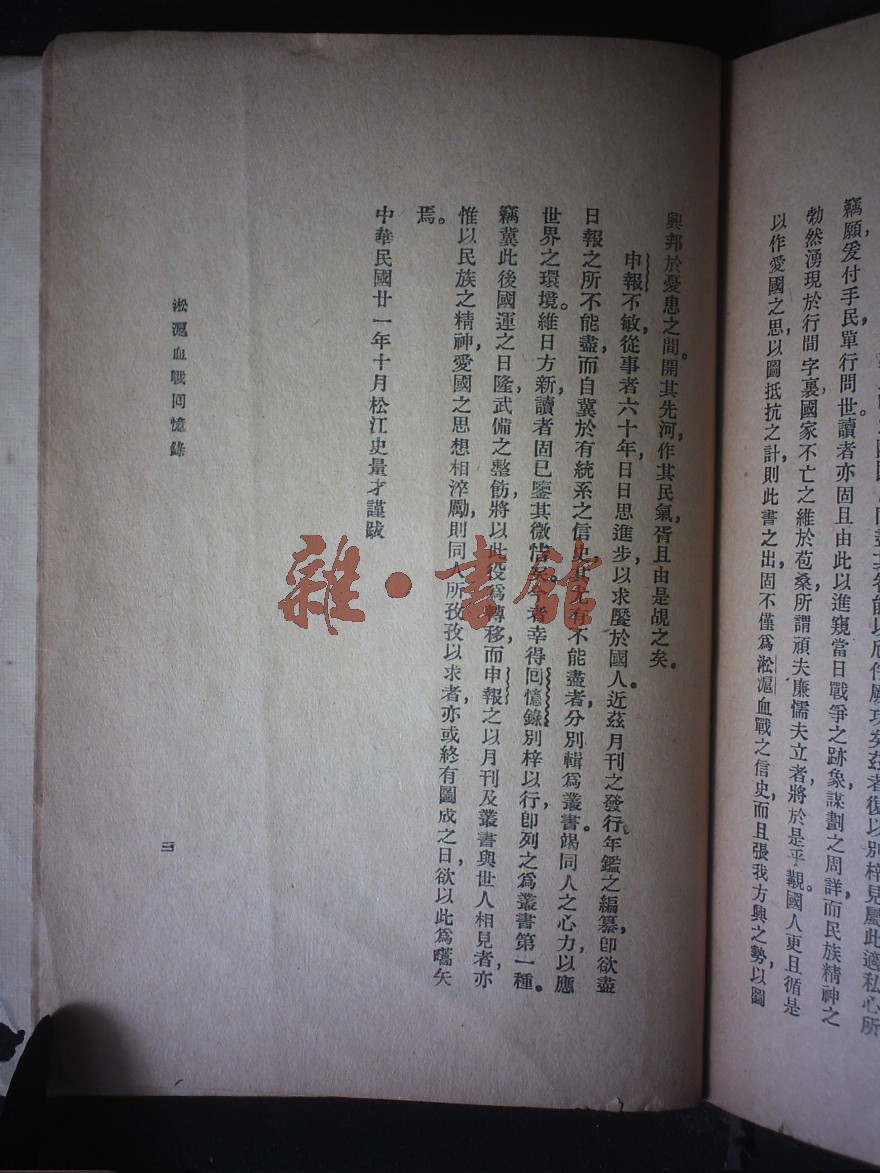 竭盡其智能以
復以別梓見屬此適私心所
竊願爰付手民單行問世讀者亦固且由此以進窺當日戰爭之跡象謀劃之周詳而民族精神之
勃然湧現於行間字裏國家不亡之維於苞桑所謂頑夫廉懦夫立者將於是乎觀國人更且循是
以作愛國之思以圖抵抗之計則此書之出固不僅爲淞滬血戰之信史而且張我方興之勢以圖
興邦於憂患之間。開其先河，作其民氣，胥且由是覘之矣。
申報不敏，從事者六十年，日日思進步以求饜於國人。近茲月刊之發行，年鑑之編纂，卽欲盡
日報之所不能盡而自冀於有統系之信史其尤有不能盡者，分別輯爲叢書。竭同人之心力以應
世界之環境。維日方新，讀者固已鑒其微悃矣。今者幸得回憶錄別梓以行，卽列之爲叢書第一種。
竊冀此後國運之日隆，武備之整飭，將以此役爲轉移，而申報之以月刊及叢書與世人相見者，亦
惟以民族之精神，愛國之思想相淬勵，則同人所孜孜以求者，亦或終有圖成之日，欲以此爲嚆矢
焉。
中華民國廿一年十月松江史量才謹跋
淞滬血戰回憶錄
三
雜·書館